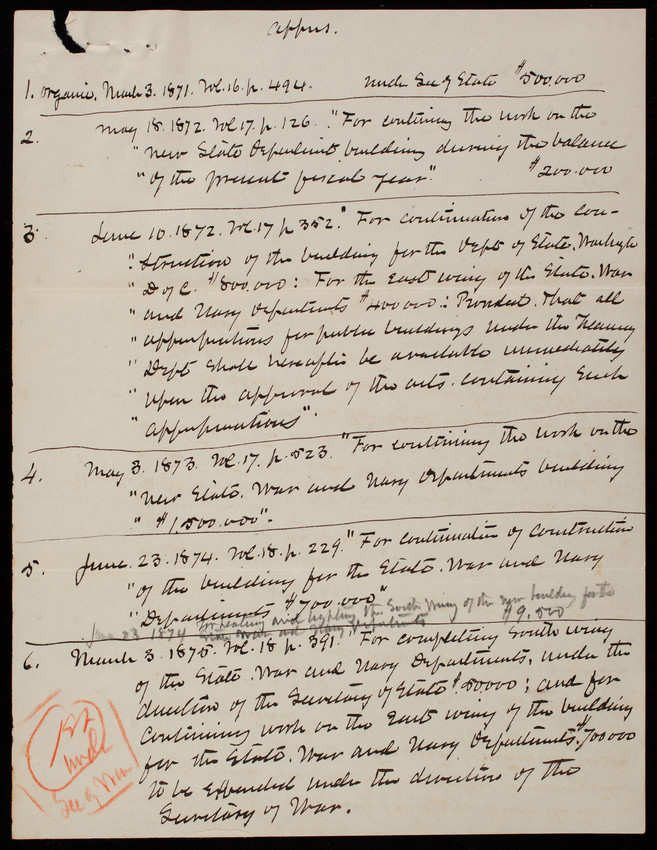 Apprns.
1. Organic. March 3. 1871. Vol. 16. p. 494. Under Sec of State $500.000
2. May 18. 1872. Vol 17. p. 126. "For continuing the work on the
"new State Department building during the balance
"of the present fiscal year". $200.000
3. June 10. 1872. Vol. 17 p 352. "For continuation of the con-
"struction of the building for the Dept of State. Washgtn
"D of C. $500.000: For the East wing of the State. War
"and Navy Departments $400.000: Provided. That all
"appropriations for public buildings under the Treasury
"Dept shall hereafter be available immediately
"upon the approval of the acts. containing such
"appropriations".
4. May 3. 1873. Vol. 17. p. 523. "For continuing the work on the
"new State. War and Navy Departments building
"$1,500.000".
5. June. 23. 1874. Vol. 18. p. 229. "For continuation of construction
"of the building for the State. War and Navy
"Departments $700.000"
June 23 1874 for heating and lighting the South Wing of the new building for the
State War and Navy Departments $9,500
6. March 3. 1875. Vol. 18. p. 391. For completing South wing
of the State. War and Navy Departments, under the
direction of the Secretary of State $.50000; and for
continuing work on the East wing of the building
for the State. War and Navy Departments. $700000
to be expended under the direction of the
Secretary of War.
1st
under
Sec of War